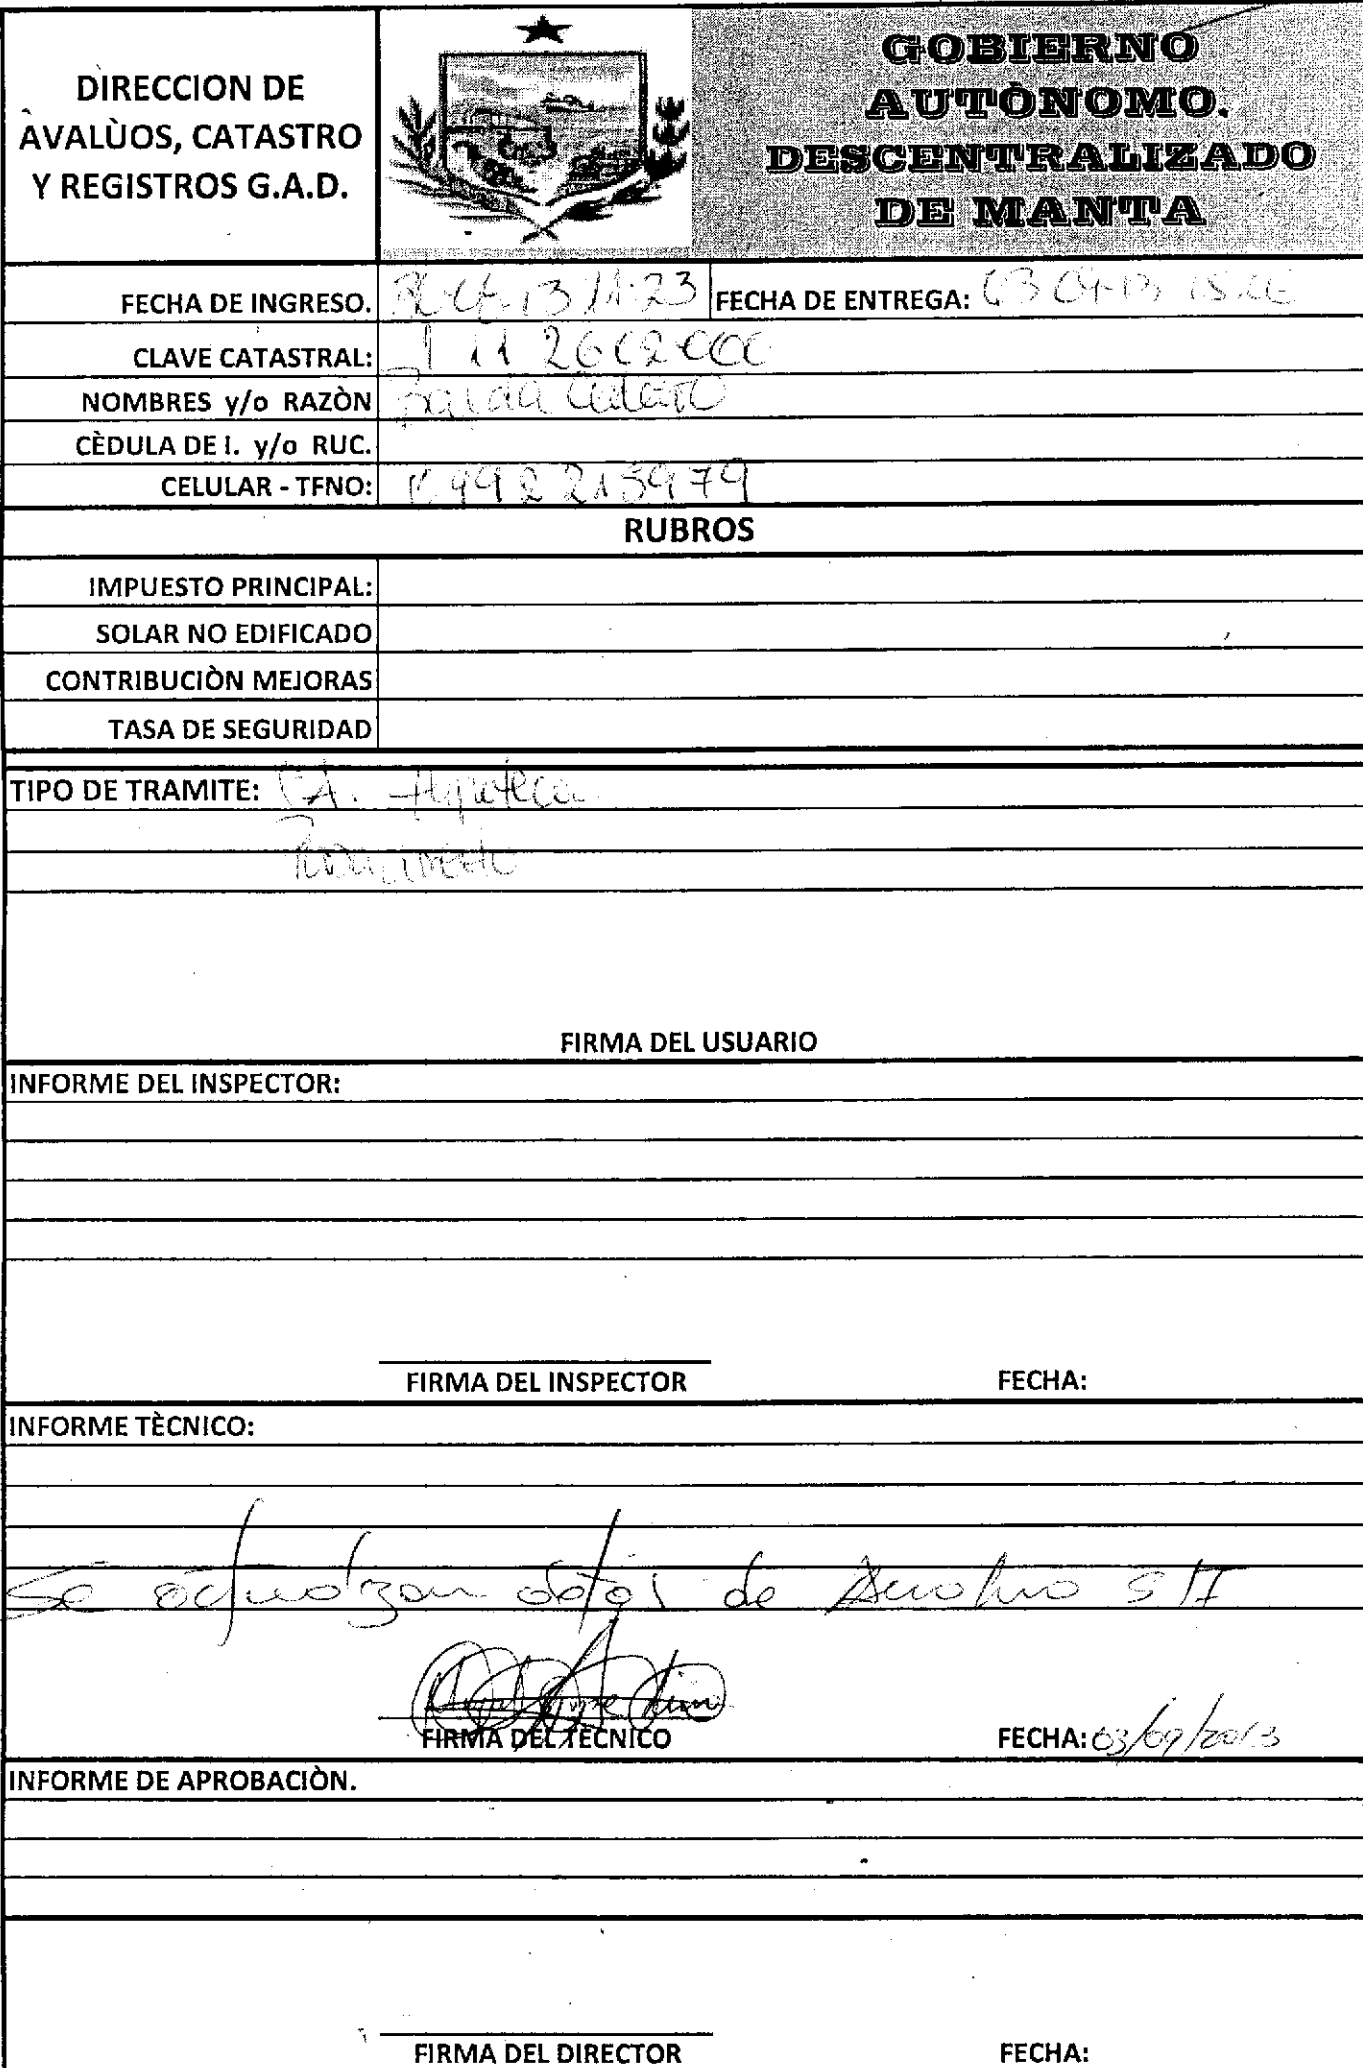 DIRECCION DE
AVALÙOS, CATASTRO
Y REGISTROS G.A.D.
GOBIERNO
AUTÒNOMO.
DESCENTRALIZADO
DE MANTA
FECHA DE INGRESO. 13 11:23 FECHA DE ENTREGA:
CLAVE CATASTRAL: 1112602000
NOMBRES y/o RAZÒN
CÈDULA DE I. y/o RUC.
CELULAR - TFNO: 0992215979
RUBROS
IMPUESTO PRINCIPAL:
SOLAR NO EDIFICADO
CONTRIBUCIÒN MEJORAS
TASA DE SEGURIDAD
TIPO DE TRAMITE: CA. Hipoteca
FIRMA DEL USUARIO
INFORME DEL INSPECTOR:
FIRMA DEL INSPECTOR FECHA:
INFORME TÈCNICO:
Se actualizan datos de S/I
FIRMA DEL TÈCNICO FECHA: 03/09/2013
INFORME DE APROBACIÒN.
FIRMA DEL DIRECTOR FECHA: